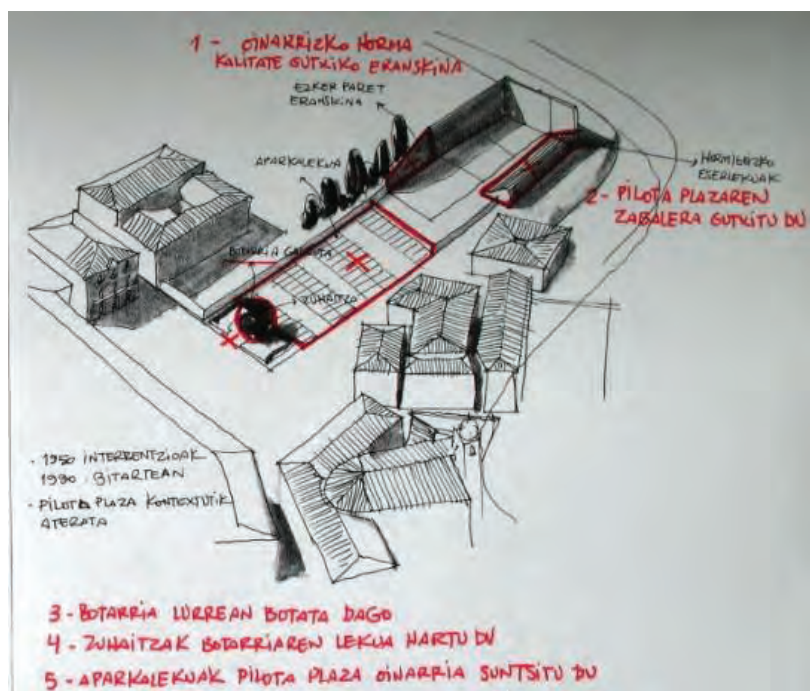 1 - OINARRIZKO HORMA
KALITATE GUTXIKO ERANSKINA
EZKER PARET
ERANSKINA
APARKALEKUA
HORMIGOIZKO
ESERLEKUAK
2 - PILOTA PLAZAREN
ZABALERA GUTXITU DU
BOTARRIA
ZUHAITZA
- 1950 INTERBENTZIOAK
1990 BITARTEAN
- PILOTA PLAZA KONTEXTUTIK
ATERATA
3 - BOTARRIA LURREAN BOTATA DAGO
4 - ZUHAITZAK BOTARRIAREN LEKUA HARTU DU
5 - APARKALEKUAK PILOTA PLAZA OINARRIA SUNTSITU DU